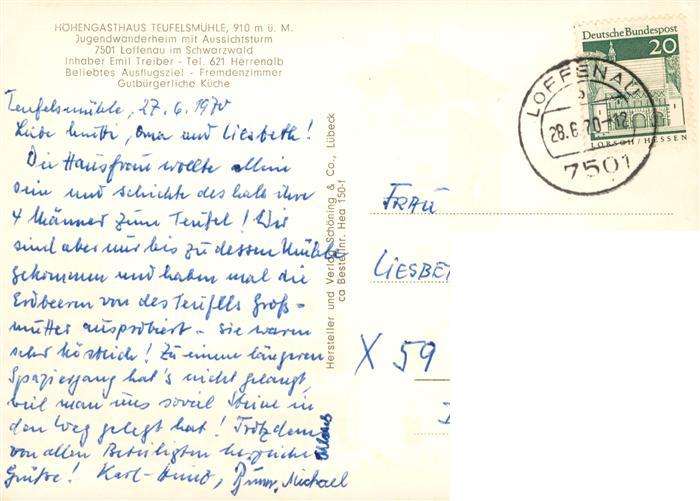 HÖHENGASTHAUS TEUFELSMÜHLE, 910 m ü. M.
Jugendwanderheim mit Aussichtsturm
7501 Loffenau im Schwarzwald
Inhaber Emil Treiber - Tel. 621 Herrenalb
Beliebtes Ausflugsziel - Fremdenzimmer
Gutbürgerliche Küche
Teufelsmühle, 27.6.1970
Liebe Mutti, Oma und Liesbeth!
Die Hausfrau wollte allein
sein und schickte deshalb ihre
4 Männer zum Teufel! Wir
sind aber nur bis zu dessen Mühle
gekommen und haben mal die
Erdbeeren von des Teufels Groß-
mutter ausprobiert - sie waren
sehr köstlich! Zu einem längeren
Spaziergang hat's nicht gelangt,
weil man uns soviel Steine in
den Weg gelegt hat! Trotzdem
von allen Beteiligten herzliche
Grüße! Karl-Heinz, Michael
Hersteller und Verlag Schöning & Co., Lübeck
ca Bestellnr. Hea 150-f
Deutsche Bundespost
20
LORSCH/HESSEN
LOFFENAU
b
28.6.70-12
7501
FRAU
LIESBET
X 59